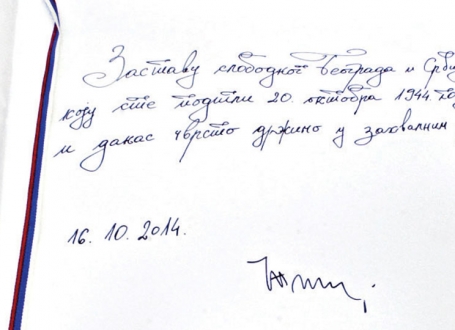 Заставу слободног Београда и Срби
коју сте подигли 20. октобра 1944. год
и данас чврсто држимо у захвалним
16. 10. 2014.